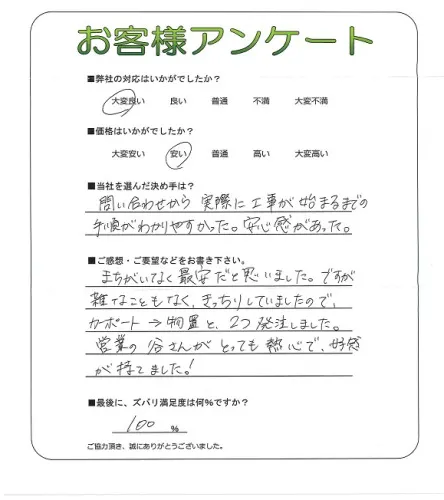 お客様アンケート
■弊社の対応はいかがでしたか？
大変良い 良い 普通 不満 大変不満
■価格はいかがでしたか？
大変安い 安い 普通 高い 大変高い
■当社を選んだ決め手は？
問い合わせから 実際に工事が始まるまでの
手順がわかりやすかった。安心感があった。
■ご感想・ご要望などをお書き下さい。
まちがいなく最安だと思いました。ですが
雑なこともなく、きっちりしていましたので、
カーポート→物置と、2つ発注しました。
営業の谷さんがとっても熱心で、好感
が持てました！
■最後に、ズバリ満足度は何%ですか？
100 %
ご協力頂き、誠にありがとうございました。